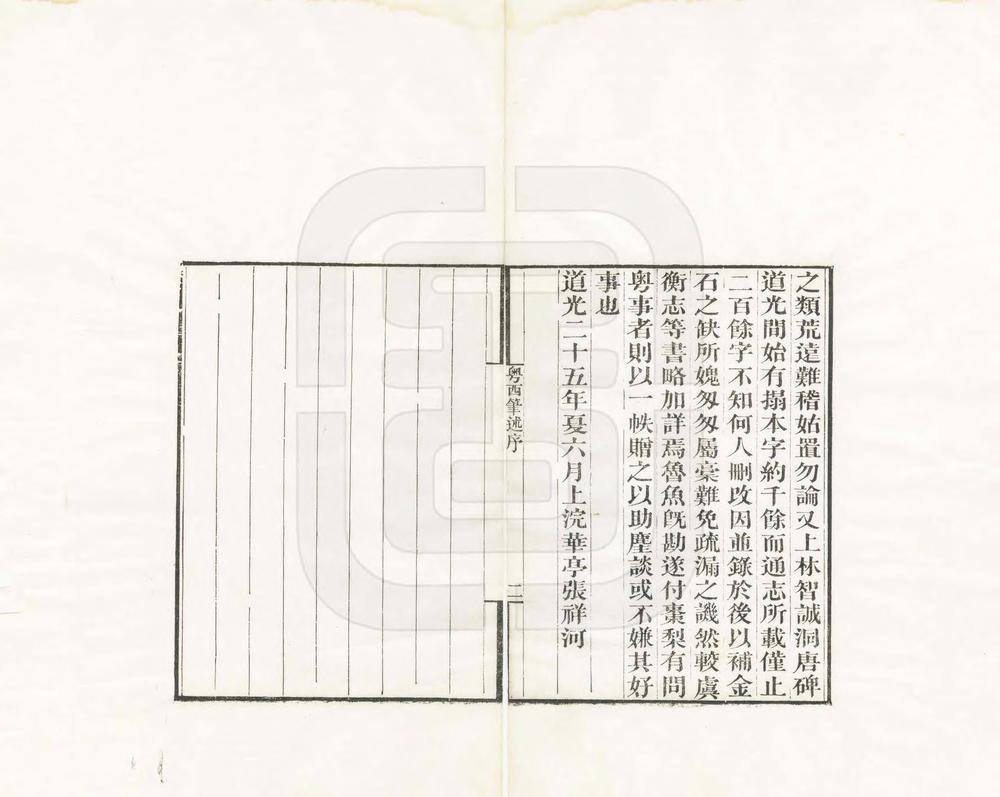 之類荒遠難稽姑置勿論又上林智誠洞唐碑
道光間始有搨本字約千餘而通志所載僅止
二百餘字不知何人刪改因並錄於後以補金
石之缺所媿匆匆屬稾難免疏漏之譏然較虞
衡志等書略加詳焉魯魚旣勘遂付棗梨有問
粤事者則以一帙贈之以助麈談或不嫌其好
事也
道光二十五年夏六月上浣華亭張祥河
粤西筆述序
二